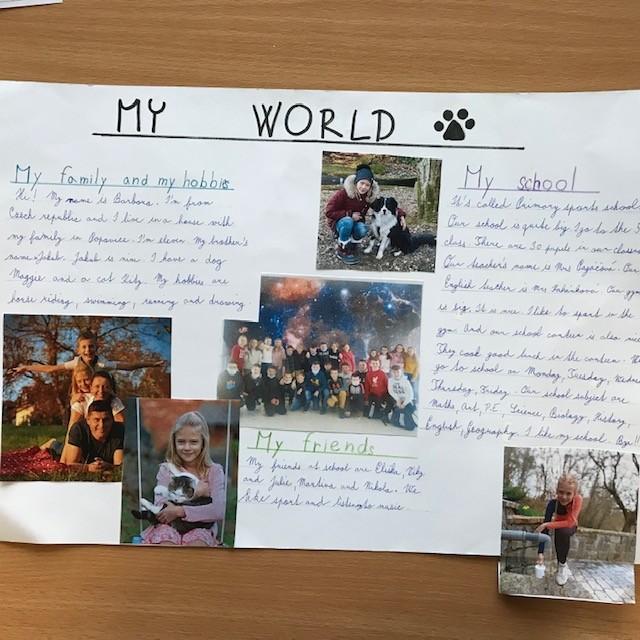 MY WORLD
My family and my hobbies
Hi! My name is Barbora. I'm from
Czech republic and I live in a house with
my family in Popovice. I'm eleven. My brother's
name's Jakub. Jakub is nine. I have a dog
Maggie and a cat Kity. My hobbies are
horse riding, swimming, running and drawing.
My friends
My friends at school are Eliška, Viky
and Julie, Martina and Nikola. We
like sport and listening to music.
My school
It's called Primary sports school
Our school is quite big. I go to the
class. There are 30 pupils in our classro
Our teacher's name is Mrs Our
English teacher is Mrs Our gym
is big. It is nice. I like to sport in the
gym. And our school canteen is also nice
They cook good lunch in the canteen. We
go to school on Monday, Tuesday, Wedne
Thursday, Friday. Our school subject are
Maths, Art, P.E., Science, Biology, History,
English, Geography. I like my school. Bye!!